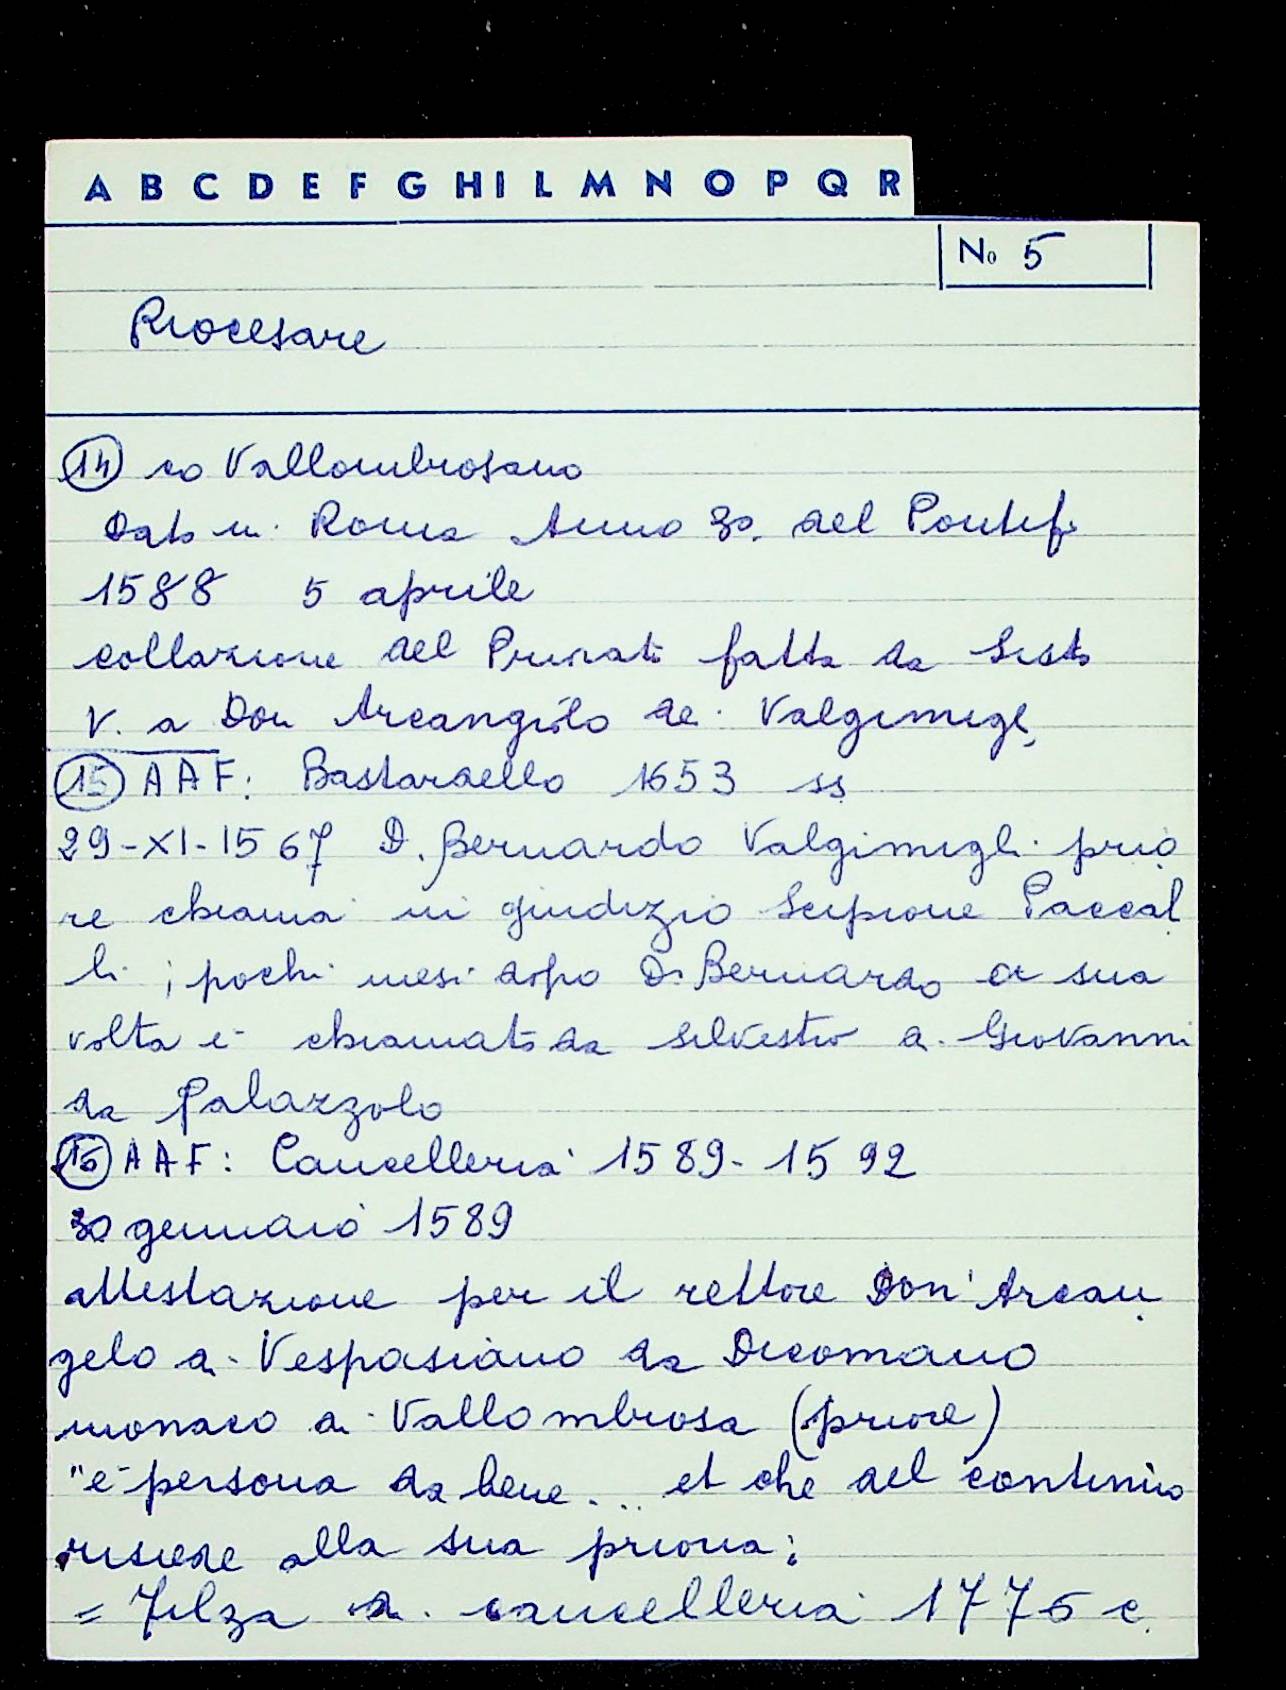 A B C D E F G H I L M N O P Q R
No 5
Riocesare
14 co Vallombrosano
Dato in Roma Anno 3o. del Pontef.
1588 5 aprile
collazione del Priorato fatta da Sisto
V. a Don Arcangiolo de Valgimigl
15 AAF: Bastardello 1653 ss
29-XI-1567 D. Bernardo Valgimigli prio
re chiama in giudizio Scipione Paccal
li; pochi mesi dopo D. Bernardo a sua
volta è chiamato da Silvestro di Giovanni
da Palazzolo
16 AAF: Cancelleria 1589-1592
30 gennaio 1589
attestazione per il rettore Don Arcan
gelo di Vespasiano da Dicomano
monaco di Vallombrosa (priore)
"è persona da bene... et che del continuo
risiede alla sua prioria;
= Filza di cancelleria 1776 c.